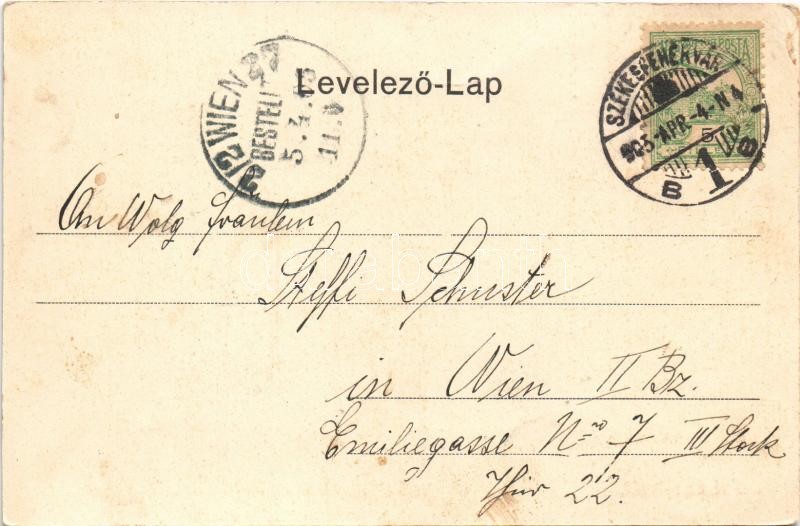 Levelező-Lap
2/2 WIEN
BESTELLT
5.4.05
11.V
POSTA
SZÉKESFEHÉRVÁR
905 APR -4 -N4
5
B 1 B
An Wolg Fraulein
Steffi Schuster
in Wien II Bz.
Emiliegasse Nro 7 III Stock
Thür 22.